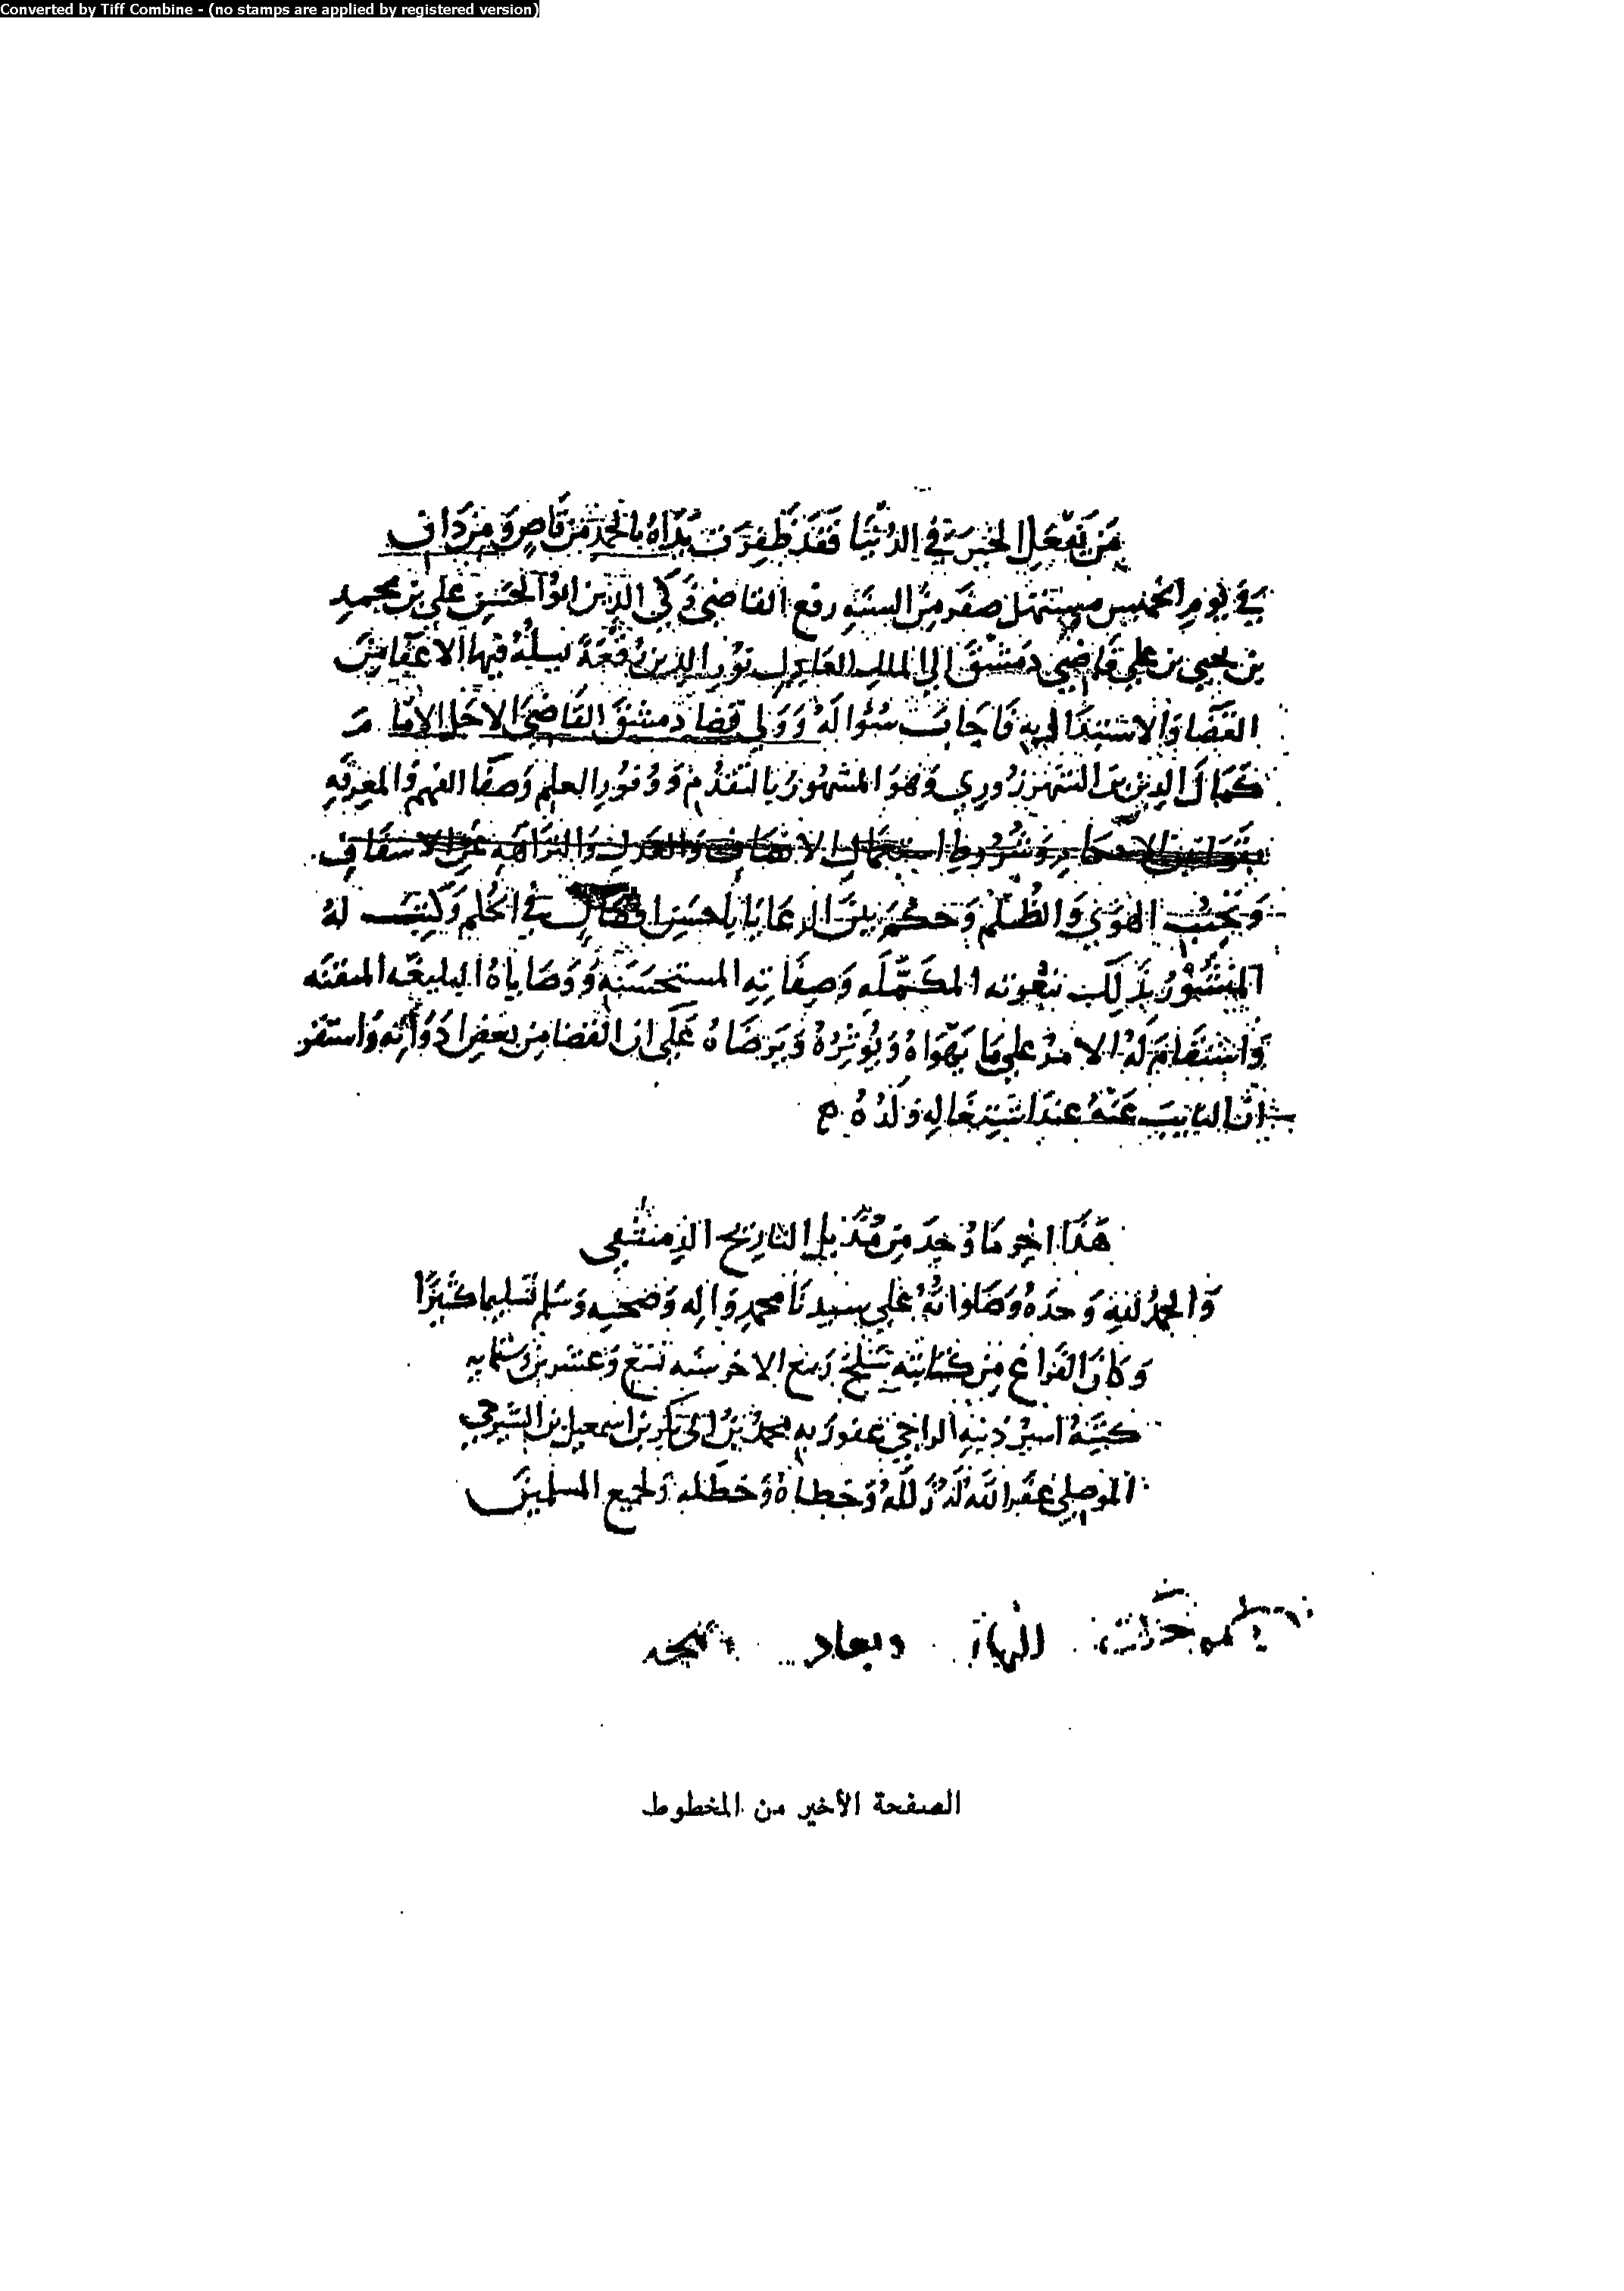 Converted by Tiff Combine - (no stamps are applied by registered version)
مَن يَفعَل الخير في الدُنيَا فَقَد ظَفِرَت يَدَاهُ بالحمد من قَاصٍ وَمِن دَاني
في يَومِ الخميس مستهل صفر من السنه رفع القاضي زكي الدين ابو الحسَن علي بن محمد
بن يحيي بن علي قاضي دمشق الي الملك العادل نور الدين رُقعَةً يسلهُ فيها الاعفا من
القضا وَالاستبدَال به فاجاب سُؤاله وَوَلي قضا دمشق القَاضي الاجَل الامام
كمال الدين بن الشهرزُوري وَهوَ المشهور بالتقدُم وَوُفُور العلم وَصفَا الفهم وَالمعرفه
بقوانين الاحكام وشرُوط استعمال الانصاف والعدل والنزاهه عن الاسفاف
وَتجنب الهوَي وَالظُلم وَحكم بين الرعايَا باحسَن في الحُكم وَكُتب لَهُ
المنشور بذلك بنعوته المكمّله وَصِفَاته المستحسَنه وَوَصَاياهُ البليغه المتقنه
وَاستقَامَ لَهُ الامر علي مَا يَهوَاهُ وَيُوثرُهُ وَيَرضَاهُ عَلي ان القضا من بعض ادَوَاته وَاستقر
ان النايب عَنهُ عند اشتغاله وَلدُهُ
هَذَا اخِر مَا وُجدَ من مُذَيل التاريخ الدمشقي
وَالحمدُ لله وَحدَهُ وَصَلواته علي سيدنَا محمد وَاله وَصحبه وَسَلم تسليما كثيرًا
وَكانَ الفراغ من كتابته سَلخ ربيع الاخر سنه تسع وَعشرين وستمايه
كتبَهُ اسير ذَنبه الراجي عفو رَبه محمد بن ابي بَكر بن اسمعيل بن الشيرجي
الموصلي غفر الله لَهُ زللَهُ وَخطاهُ وَخطله وَلجميع المسلمين
الصفحة الأخير من المخطوط